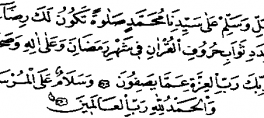 ل وسلم على سيدنا محمد صلوة تكون لك رضا
دد ثواب حروف القرآن في شهر رمضان وعلى اله وصح
ربك رب العزة عما يصفون وسلام على المرس
والحمد لله رب العالمين